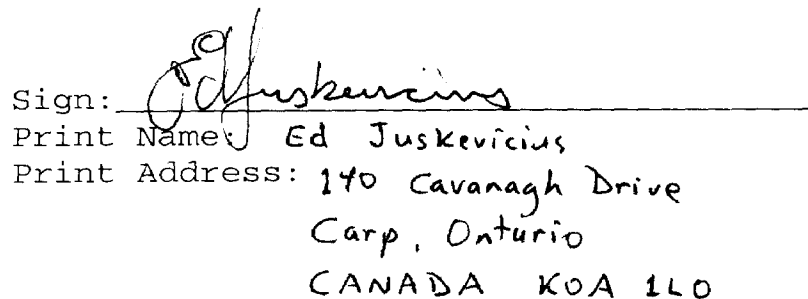 Sign: Ed Juskevicius
Print Name: Ed Juskevicius
Print Address: 140 Cavanagh Drive
Carp, Ontario
CANADA K0A 1L0